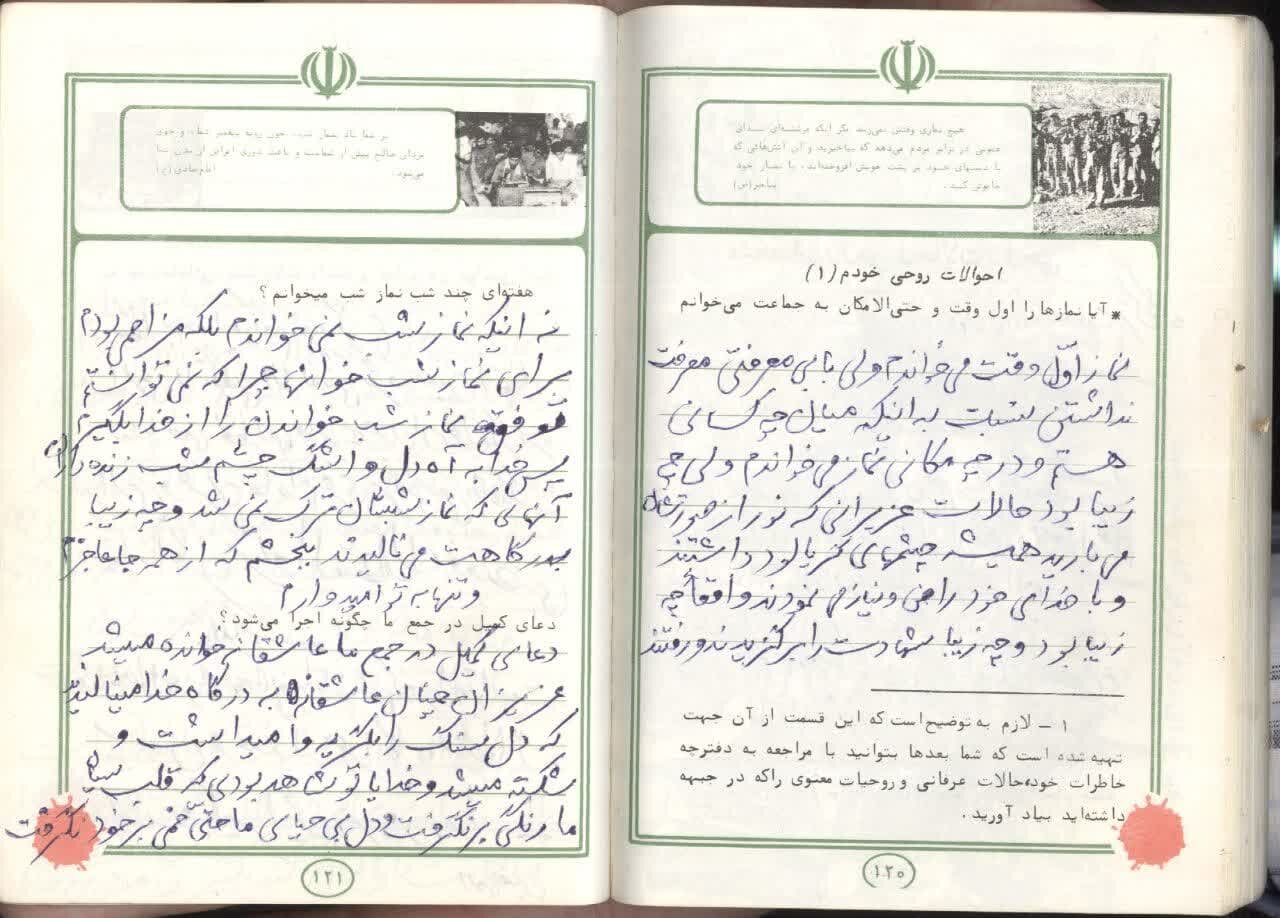 هیچ نمازی وقتش نمی‌رسد مگر اینکه فرشته‌ای ندای
عمومی در برابر مردم می‌دهد که بپاخیزید و این آتش‌هائی که
با دستهای خود بر پشت خویش افروخته‌اید، با نماز خود
خاموش کنید. پیامبر(ص)
احوالات روحی خودم (۱)
* آیا نمازها را اول وقت و حتی‌الامکان به جماعت می‌خوانم
نماز اوّل وقت می‌خواندم ولی با بی معرفتی معرفت
نداشتن نسبت به اینکه میان چه کسانی
هستم و در چه مکانی نماز می‌خواندم ولی چه
زیبا بود حالات عزیزانی که نور از صورتشان
می بارید همیشه چشمهای گریالود داشتند
و با خدای خود راض و نیاز می نمودند واقعأ چه
زیبا بود و چه زیبا شهادت را برگزیدند و رفتند
۱ – لازم به توضیح است که این قسمت از آن جهت
تهیه شده است که شما بعدها بتوانید با مراجعه به دفترچه
خاطرات خود، حالات عرفانی و روحیات معنوی را که در جبهه
داشته‌اید بیاد آورید.
۱۲۰
بر شما باد نماز شب، چون رویه پیغمبر شما، و خوی
مردان صالح پیش از شماست و باعث دوری امراض از بدن شما
می‌شود. امام صادق (ع)
هفته‌ای چند شب نماز شب میخوانم؟
نه اینکه نماز شب نمی خواندم بلکه مزاحم بودم
برای نماز شب خوانها چرا که نمی توانستم
توفیق نماز شب خواندن را از خدا بگیرم
پس خدا به آه دل و اشک چشم شب زنده داران
آنهایی که نماز شبشان ترک نمی شد و چه زیبا
بدرگاهت می نالیدند ببخشم که از همه جا عاجزم
و تنها به تو امیدوارم
دعای کمیل در جمع ما چگونه اجرا می‌شود؟
دعای کمیل در جمع ما عاشقانه خوانده میشد
عزیزان چنان عاشقانه به درگاه خدا مینالیدند
که دل سنگ را بگریه وا میداشت و
شکسته میشد و خدایا تو شاهد بودی که قلب سیاه
ما رنگی برنگرفت و دل بی حیای ما حتی غمی بر خود نگرفت
۱۲۱